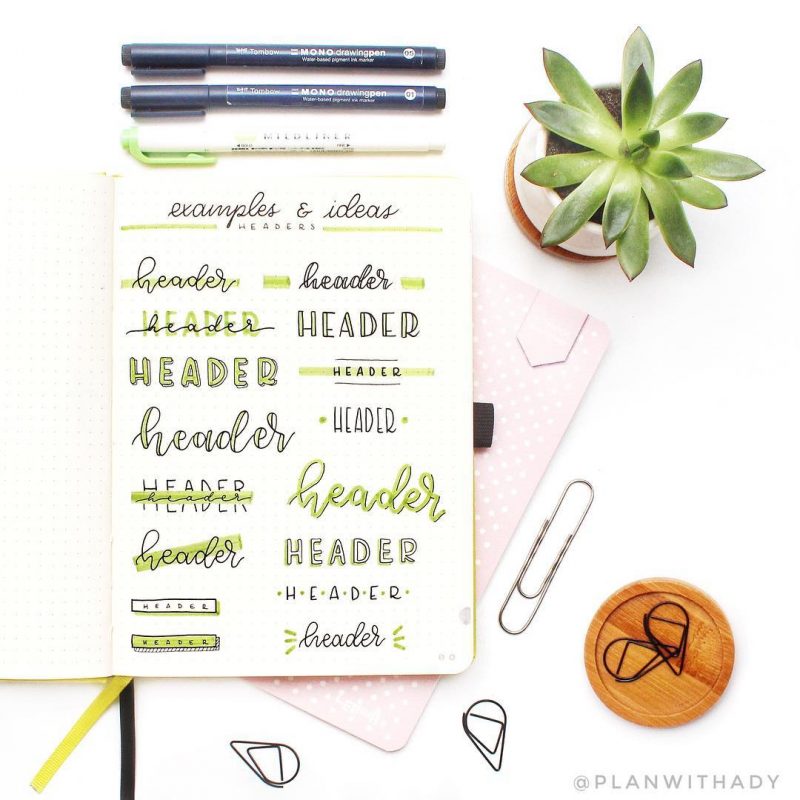 Tombow MONO drawing pen 05
Water-based pigment ink marker
Tombow MONO drawing pen 01
Water-based pigment ink marker
MILDLINER
examples & ideas
HEADERS
header header
HEADER header HEADER
HEADER HEADER
header HEADER
HEADER header header
header HEADER
HEADER HEADER
HEADER header
@PLANWITHADY